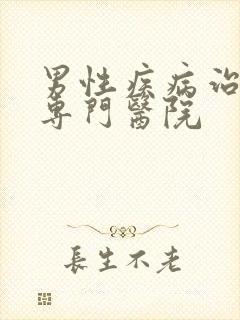 男性疾病治
專門醫院
長生不老